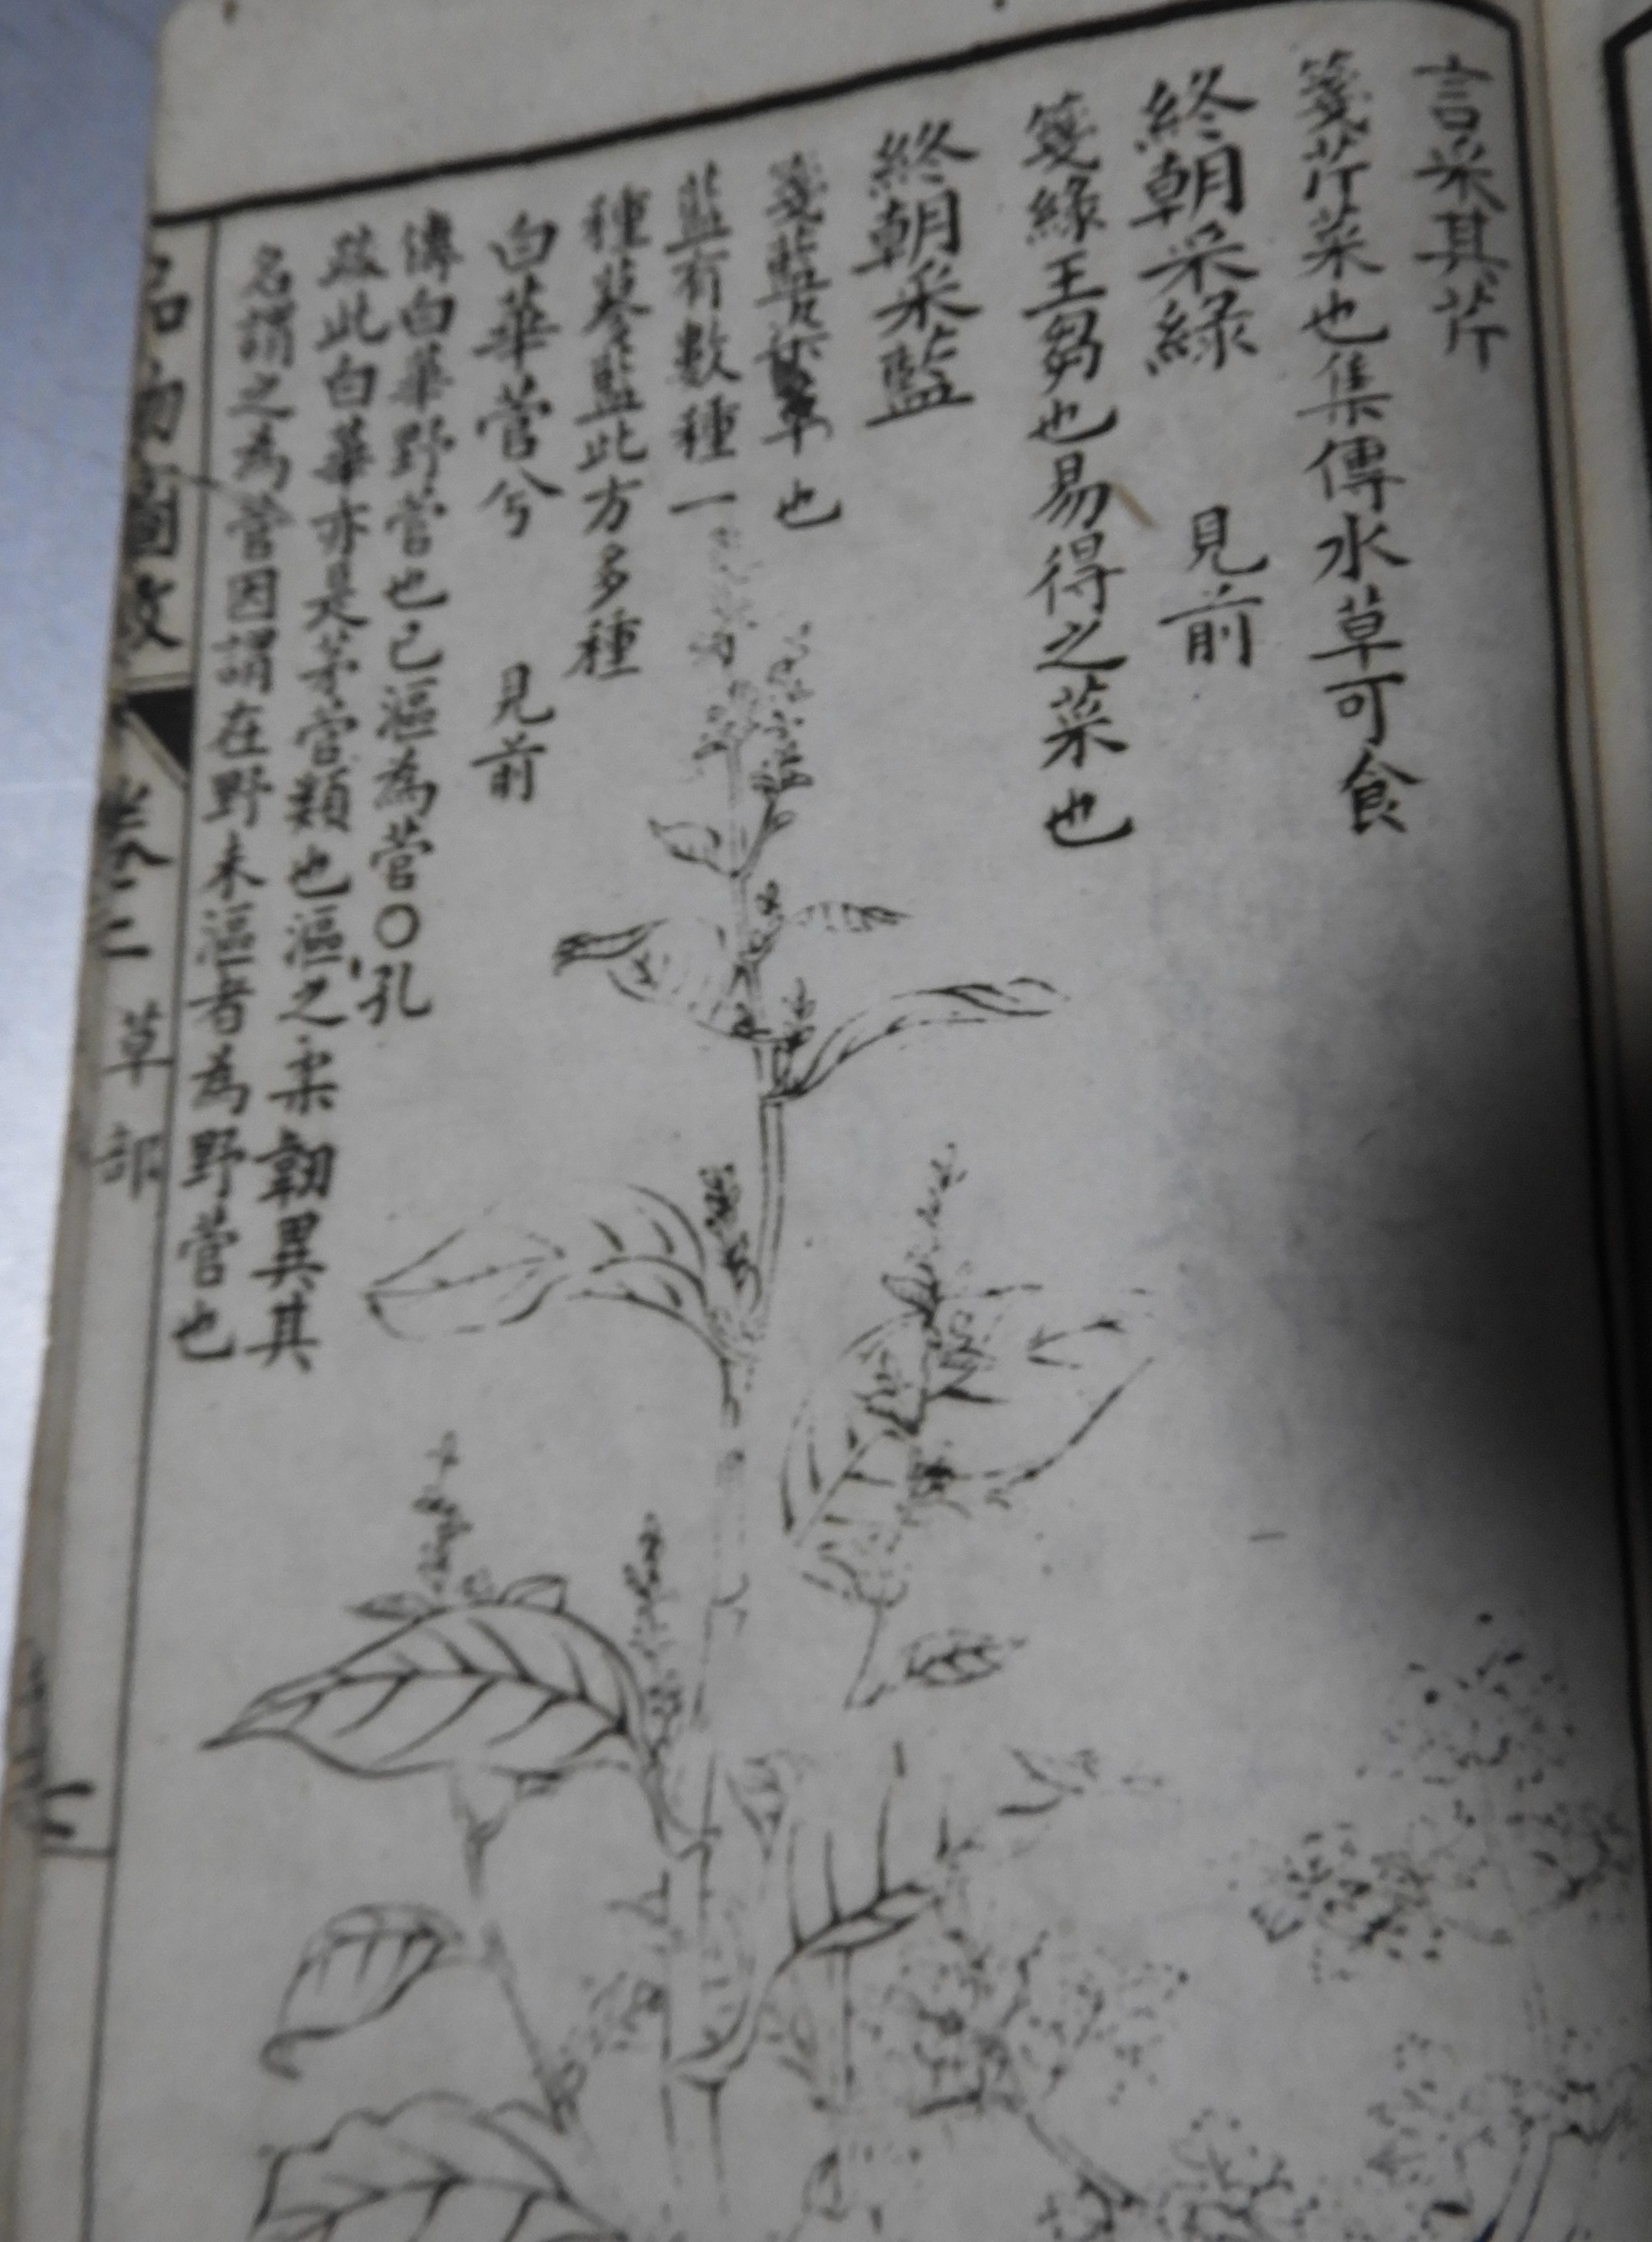 言采其芹
箋芹菜也集傳水草可食
終朝采綠　見前
箋綠王芻也易得之菜也
終朝采藍
箋藍染草也
藍有數種一
種蓼藍此方多種
白華菅兮　見前
傳白華野菅也已漚為菅〇孔
疏此白華亦是茅菅類也漚之柔韌異其
名謂之為菅因謂在野未漚者為野菅也
品物圖攷　卷二　草部